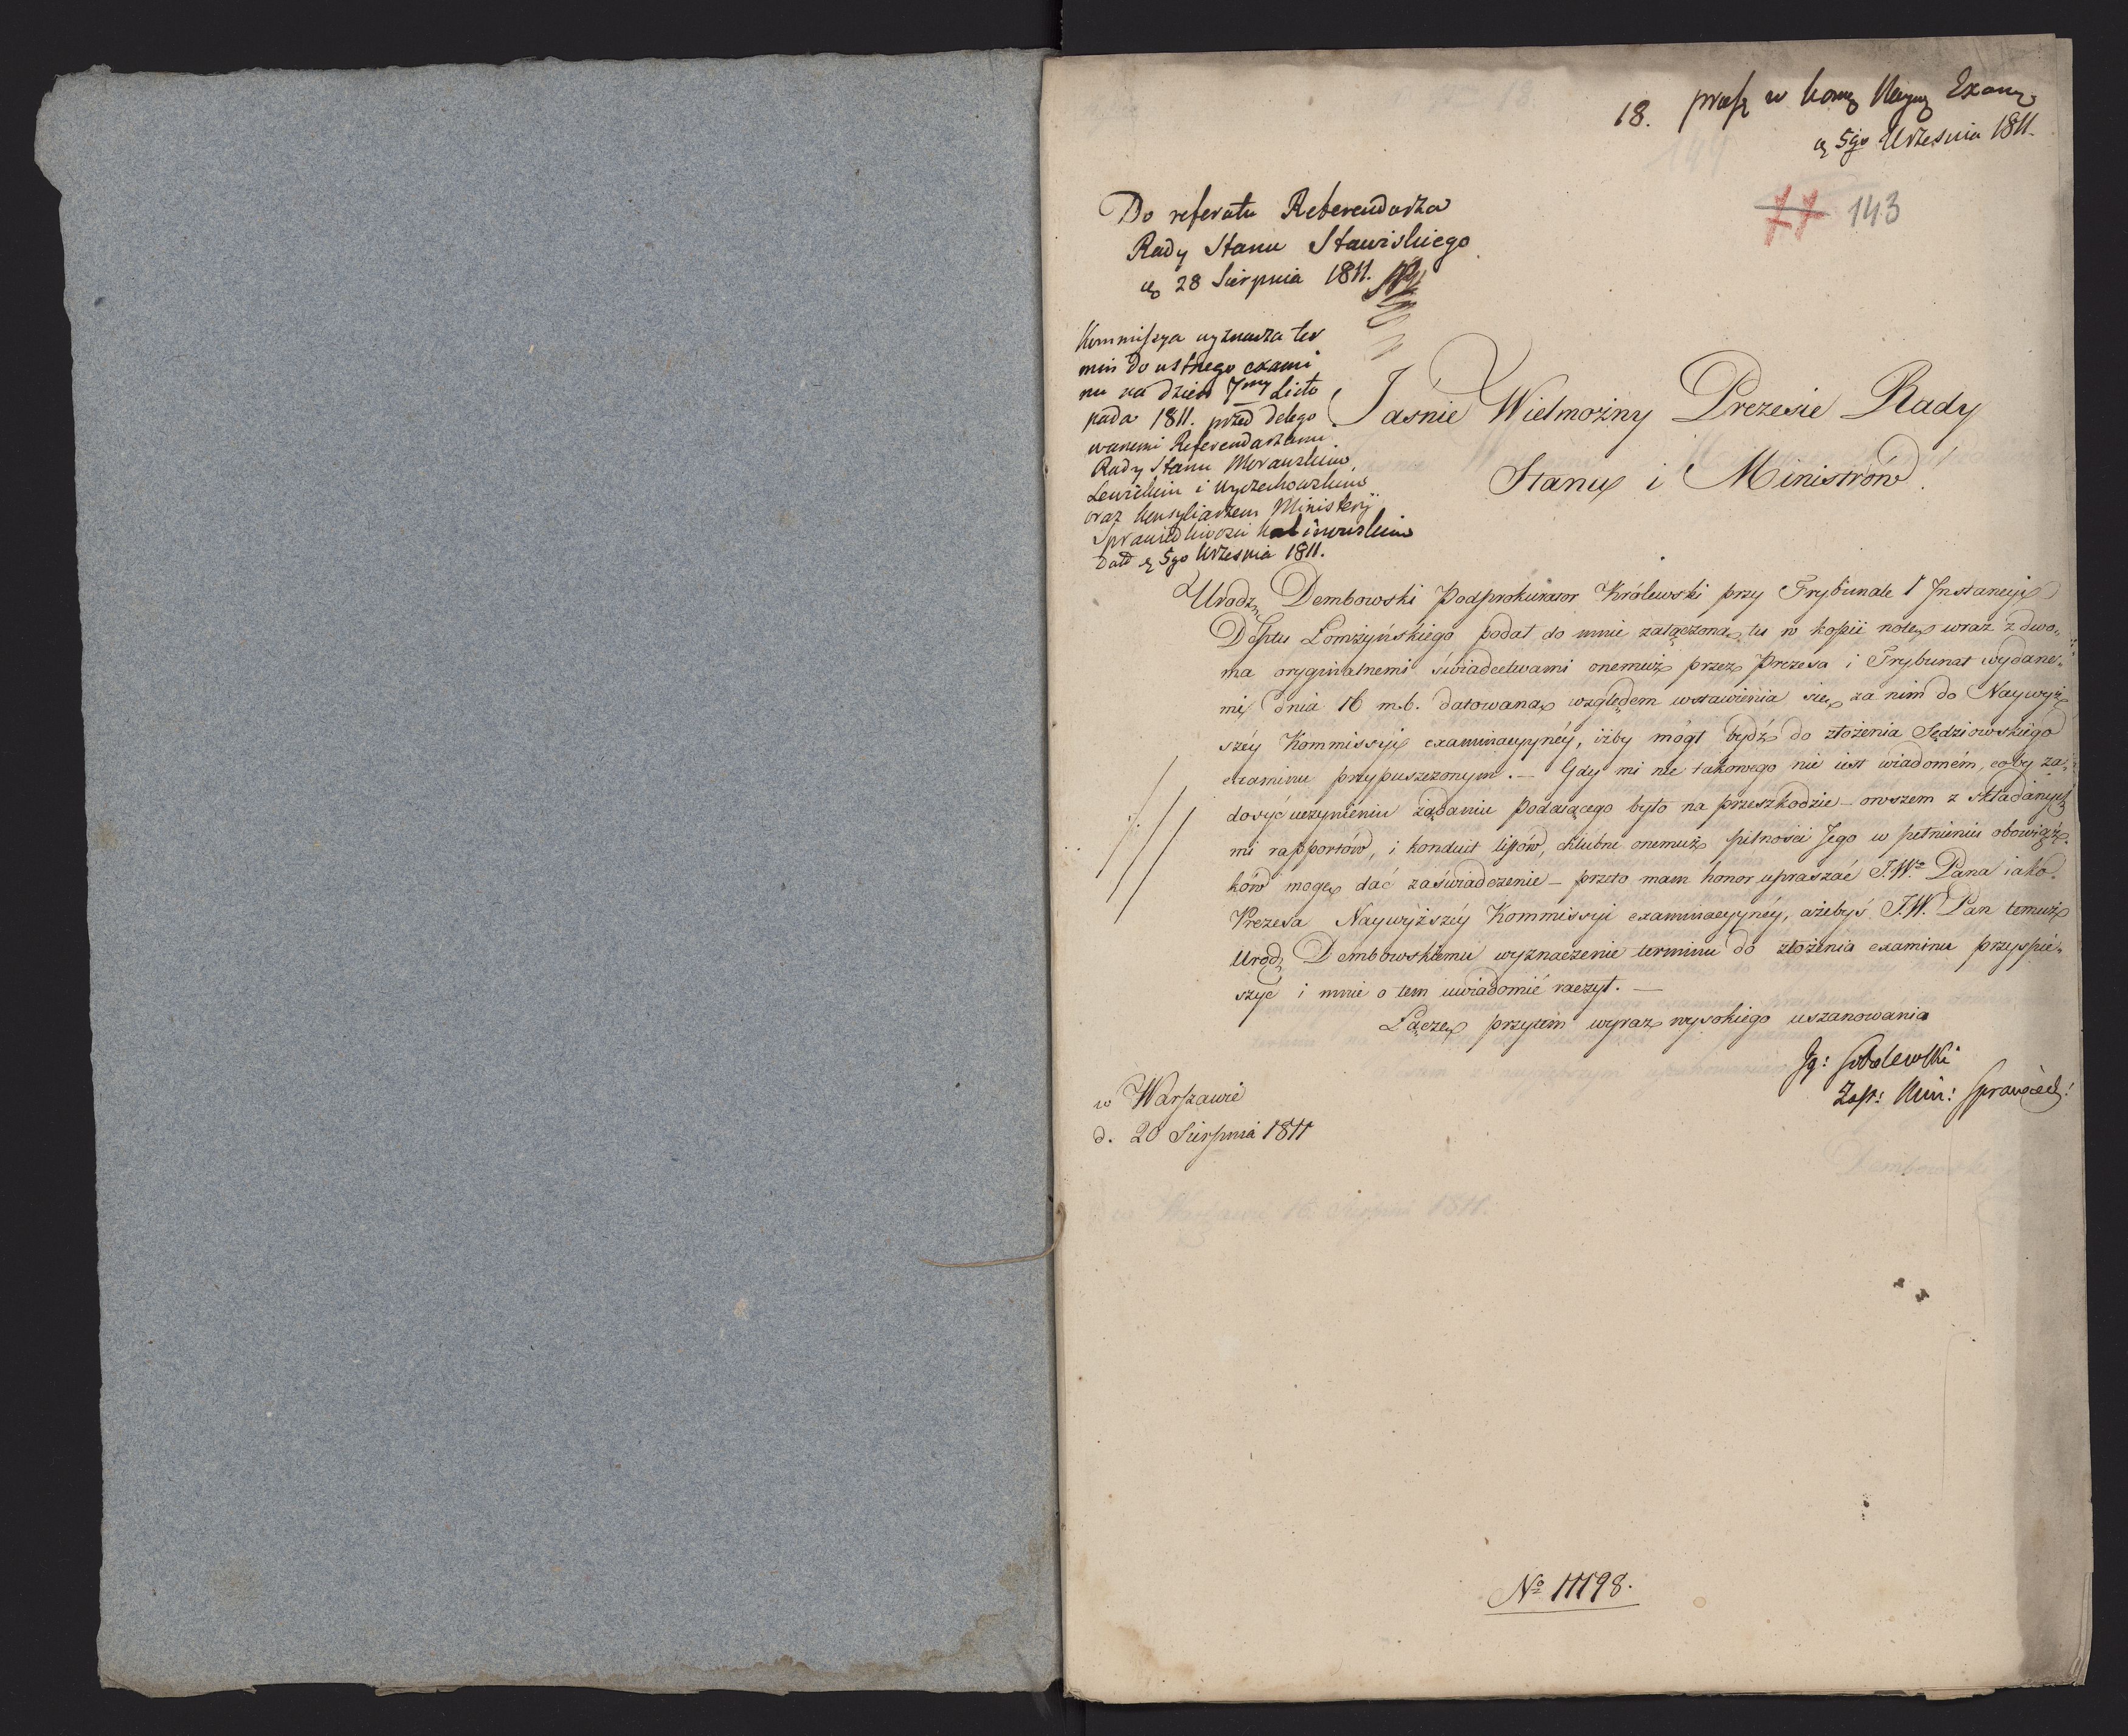 18. praes w Kom Nayw Exam
d 5go Września 1811.
77 143
Do referatu Referendarza
Rady Stanu Stawiskiego
d 28 Sierpnia 1811.
Kommissya wyznacza ter
min do ustnego exami
nu na dzień 7my Listo
pada 1811. przed delego
wanemi Referendarzami
Rady Stanu Morawskim,
Lewickim i Wyczechowskim
oraz Konsyliarzem Ministeryi
Sprawiedliwości Kalinowskim
Datt d 5go Września 1811.
Jaśnie Wielmożny Prezesie Rady
Stanu i Ministrów!
Urodz. Dembowski Podprokurator Królewski przy Trybunale 1 Instancyi
Deptu Łomżyńskiego podał do mnie załączoną tu w kopii notę wraz z dwo-
ma oryginalnemi świadectwami onemuż przez Prezesa i Trybunał wydane-
mi, dnia 16 m.b. datowaną względem wstawienia się za nim do Naywyż
széy Kommissyi examinacyynéy, iżby mógł bydź do złożenia Sędziowskiego
examinu przypuszczonym. — Gdy mi nic takowego nie iest wiadomém, coby za-
dosyć uczynieniu żądaniu Podaiącego było na przeszkodzie — owszem z składanych
mi rapportów, i konduit listów, chlubne onemuż pilności Jego w pełnieniu obowiąz-
ków mogę dać zaświadczenie — przeto mam honor upraszać J.W. Pana iako
Prezesa Naywyższéy Kommissyi examinacyynéy, ażebyś J.W. Pan temuż
Urodz. Dembowskiemu wyznaczenie terminu do złożenia examinu przyspie-
szyć i mnie o tem uwiadomić raczył. —
Łączę przytém wyraz wysokiego uszanowania
Ig: Sobolewski
Zast: Min: Sprawied:
w Warszawie
d. 20 Sierpnia 1811
No 11198.